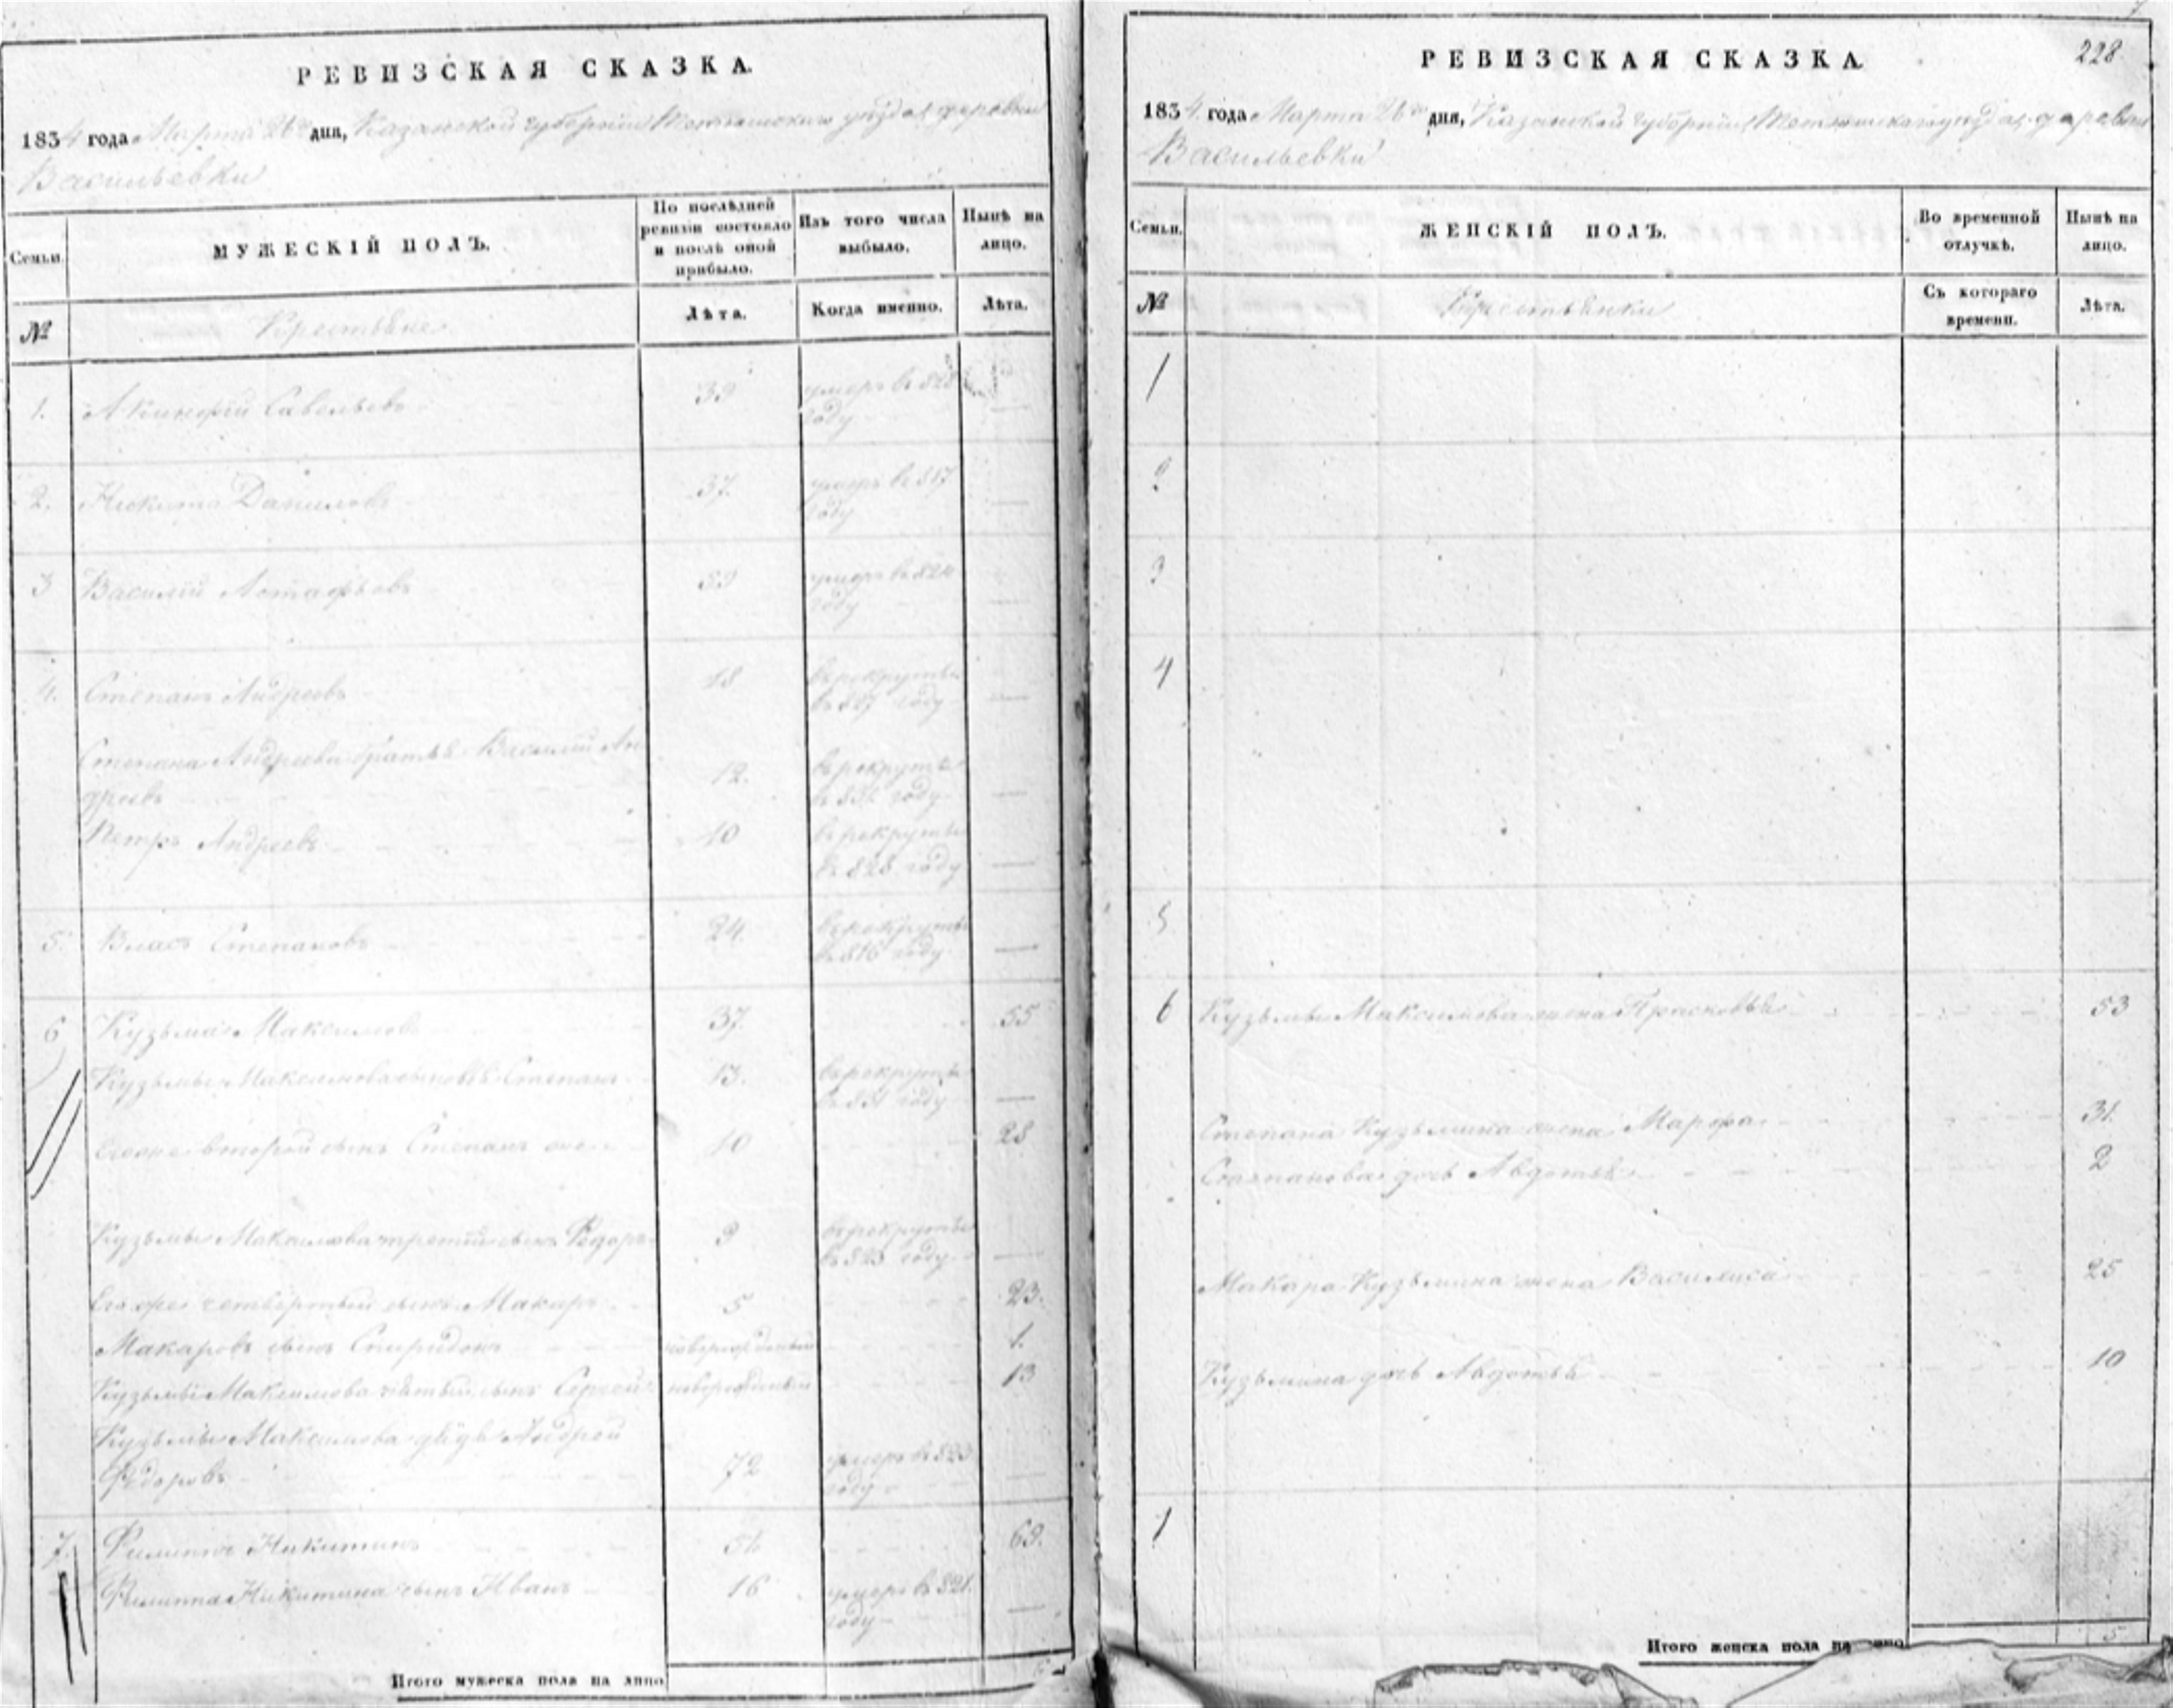 РЕВИЗСКАЯ СКАЗКА.
1834 года Марта 26го дня, Казанской губернии Тетюшского уезда, деревни
Васильевки
Семьи.
МУЖЕСКІЙ ПОЛЪ.
По послѣдней ревизіи состояло и послѣ оной прибыло.
Изъ того числа выбыло.
Нынѣ на лицо.
№
Крестьяне
Лѣта.
Когда именно.
Лѣта.
1. Савельевъ 39 умеръ в 828
году
2. Никита Даниловъ 37. умеръ в 817
году
3 Василій 59 умеръ в
году
4. Степанъ Андреевъ 18 в рекруты
в 817 году
Степана Андреева братья Василій Ан
дреевъ 12. в рекруты
году
Петръ Андреевъ 10 в рекруты
в 828 году
5. Власъ Степановъ 24. в рекруты
в 816 году
6 Кузьма Максимовъ 37. 55
Кузьмы Максимова сыновья Степанъ 13. в рекруты
в 831 году
второй сынъ Степанъ 10 28
Кузьмы Максимова третій сынъ Федоръ 9 в рекруты
году
Его же четвертый сынъ Макаръ 5 23.
Макаровъ сынъ Спиридонъ новорожденный 1.
Кузьмы Максимова пятый сынъ Сергей новорожденный 13
Кузьмы Максимова дядя
Федоровъ 72 умеръ в 823
году
7. Филиппъ Никитинъ 51 69.
Филиппа Никитина сынъ Иванъ 16 умеръ в 821.
году
Итого мужеска пола на лицо
РЕВИЗСКАЯ СКАЗКА.
228
1834 года Марта 26го дня, Казанской губернии Тетюшского уезда, деревни
Васильевки
Семьи.
ЖЕНСКІЙ ПОЛЪ.
Во временной отлучкѣ.
Нынѣ на лицо.
№
Крестьянки
Съ котораго времени.
Лѣта.
1
2
3
4
5
6 Кузьмы Максимова жена Прасковья 53
Степана Кузьмина жена Марфа 31.
Степанова дочь Авдотья 2
Макара Кузьмина жена Василиса 25
Кузьмина дочь Авдотья 10
7
Итого женска пола на лицо
5